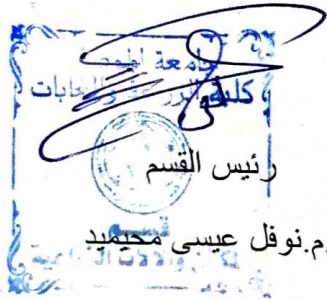 جامعة الموصل
كلية الزراعة والغابات
رئيس القسم
م.نوفل عيسى محيميد